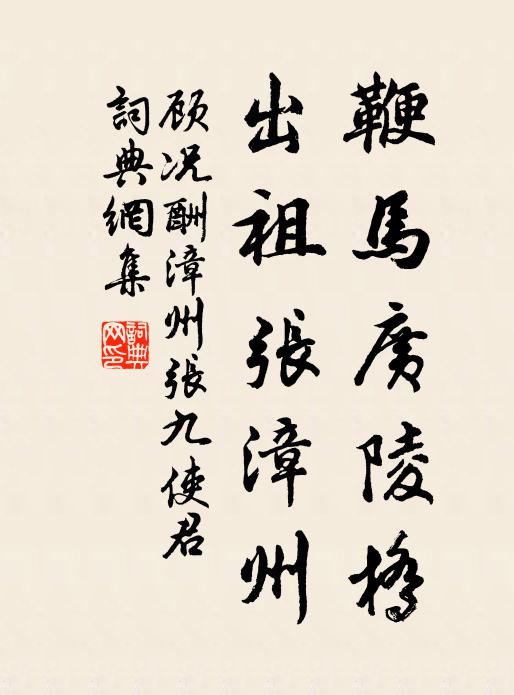 鞭馬廣陵橋
出祖張漳州
顾况酬漳州張九使君
詞典網集
詞典
网印